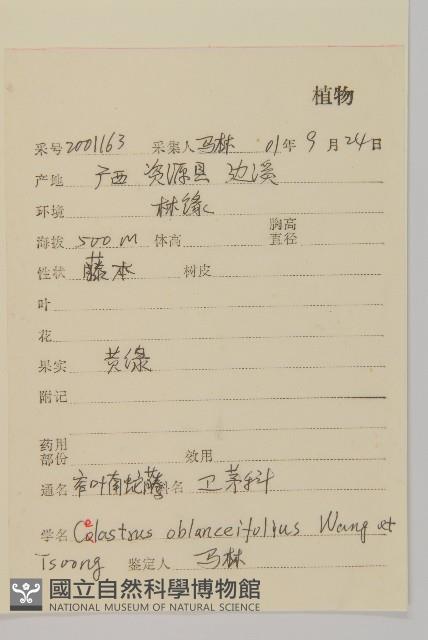 植物
采号 2001163 采集人 马林 01年 9月 24日
产地 广西 资源县 边溪
环境 林缘
海拔 500 M 体高 胸高直径
性状 藤本 树皮
叶
花
果实 黄绿
附记
药用部份 效用
通名 窄叶南蛇藤 科名 卫茅科
学名 Celastrus oblanceifolius Wang et
Tsoong 鉴定人 马林
國立自然科學博物館
NATIONAL MUSEUM OF NATURAL SCIENCE